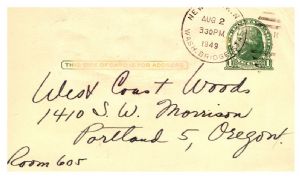 NEW YORK, N.Y.
AUG 2
530PM
1949
WASH. BRIDGE
THIS SIDE OF CARD IS FOR ADDRESS
1
West Coast Woods
1410 S.W. Morrison
Portland 5, Oregon.
Room 605